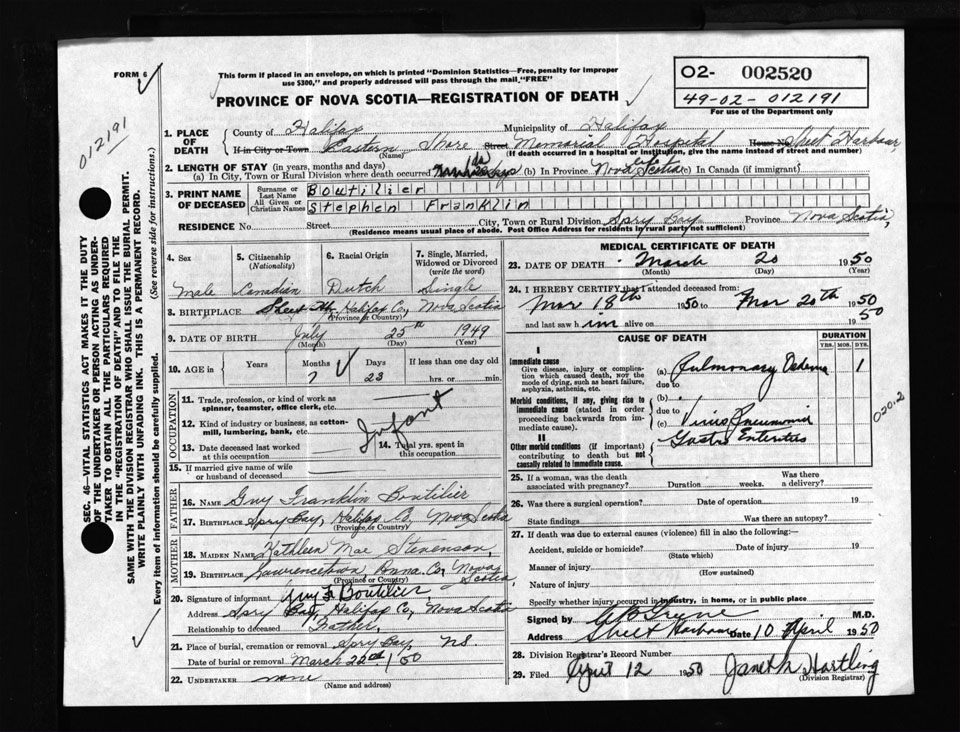 FORM 6
This form if placed in an envelope, on which is printed "Dominion Statistics—Free, penalty for improper
use $300," and properly addressed will pass through the mail, "FREE"
O2- 002520
49-02-012191
For use of the Department only
PROVINCE OF NOVA SCOTIA—REGISTRATION OF DEATH
012191
SEC. 46—VITAL STATISTICS ACT MAKES IT THE DUTY
OF THE UNDERTAKER OR PERSON ACTING AS UNDER-
TAKER TO OBTAIN ALL THE PARTICULARS REQUIRED
IN THE "REGISTRATION OF DEATH" AND TO FILE THE
SAME WITH THE DIVISION REGISTRAR WHO SHALL ISSUE THE BURIAL PERMIT.
WRITE PLAINLY WITH UNFADING INK. THIS IS A PERMANENT RECORD.
Every item of information should be carefully supplied. (See reverse side for instructions.)
1. PLACE OF DEATH
County of Halifax Municipality of Halifax
If in City or Town Eastern Shore Street Memorial Hospital House No. Sheet Harbour,
(Name) (If death occurred in a hospital or institution, give the name instead of street and number)
2. LENGTH OF STAY (in years, months and days)
(a) In City, Town or Rural Division where death occurred (b) In Province Nova Scotia life (c) In Canada (if immigrant)
3. PRINT NAME OF DECEASED
Surname or Last Name Boutilier
All Given or Christian Names Stephen Franklin
RESIDENCE No. Street City, Town or Rural Division Spry Bay Province Nova Scotia,
(Residence means usual place of abode. Post Office Address for residents in rural party not sufficient)
4. Sex
Male
5. Citizenship (Nationality)
Canadian
6. Racial Origin
Dutch
7. Single, Married, Widowed or Divorced (write the word)
Single
8. BIRTHPLACE Sheet Hr. Halifax Co, Nova Scotia
(Province or Country)
9. DATE OF BIRTH July 25th 1949
(Month) (Day) (Year)
10. AGE in Years Months Days If less than one day old
7 23 hrs. or min.
OCCUPATION
11. Trade, profession, or kind of work as
spinner, teamster, office clerk, etc.
12. Kind of industry or business, as cotton-
mill, lumbering, bank, etc.
Infant
13. Date deceased last worked
at this occupation
14. Total yrs. spent in
this occupation
15. If married give name of wife
or husband of deceased
FATHER
16. NAME Guy Franklin Boutilier
17. BIRTHPLACE Spry Bay, Halifax Co, Nova Scotia
(Province or Country)
MOTHER
18. MAIDEN NAME Kathleen Mae Stevenson,
19. BIRTHPLACE Lawrencetown, Anna. Co, Nova Scotia,
(Province or Country)
20. Signature of informant Guy F. Boutilier
Address Spry Bay, Halifax Co, Nova Scotia
Relationship to deceased Father,
21. Place of burial, cremation or removal Spry Bay, N.S.
Date of burial or removal March 22nd/50
22. UNDERTAKER none
(Name and address)
MEDICAL CERTIFICATE OF DEATH
23. DATE OF DEATH March 20 1950
(Month) (Day) (Year)
24. I HEREBY CERTIFY that I attended deceased from:
Mar 18th 1950 to Mar 20th 1950
and last saw him alive on 1950
CAUSE OF DEATH
DURATION
YRS. MOS. DYS.
I
Immediate cause
Give disease, injury or complica-
tion which caused death, NOT the
mode of dying, such as heart failure,
asphyxia, asthenia, etc.
(a) Pulmonary Oedema 1
due to
Morbid conditions, if any, giving rise to
immediate cause (stated in order
proceeding backwards from im-
mediate cause).
(b)
due to
(c) Virus Pneumonia
II
Other morbid conditions (if important)
contributing to death but not
causally related to immediate cause.
Gastro Enteritis
020.2
25. If a woman, was the death
associated with pregnancy? Duration weeks. Was there
a delivery?
26. Was there a surgical operation? Date of operation 19
State findings Was there an autopsy?
27. If death was due to external causes (violence) fill in also the following:—
Accident, suicide or homicide? Date of injury 19
(State which)
Manner of injury
(How sustained)
Nature of injury
Specify whether injury occurred in industry, in home, or in public place
Signed by M.D.
Address Sheet Harbour Date 10 April 1950
28. Division Registrar's Record Number
29. Filed April 12 1950 Janet M. Hartling
(Division Registrar)